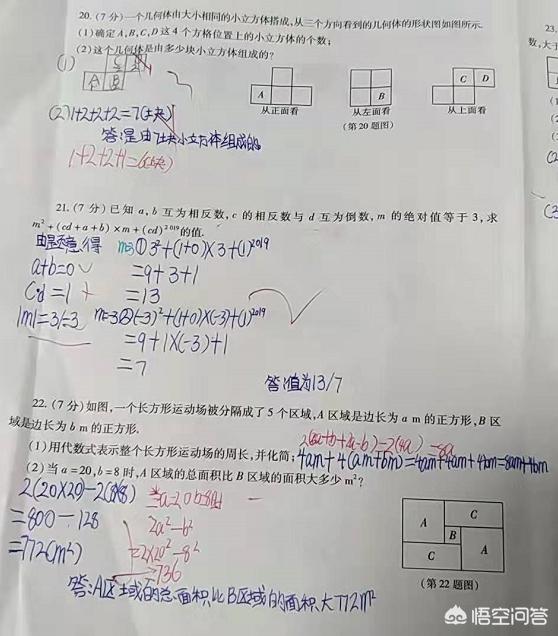 20.(7分)一个几何体由大小相同的小立方体搭成,从三个方向看到的几何体的形状图如图所示.
(1)确定A,B,C,D这4个方格位置上的小立方体的个数;
(2)这个几何体是由多少块小立方体组成的?
(1)
A
B
C D
从正面看 从左面看 从上面看
(第20题图)
(2)1+2+2+2=7(块)
答:是由7块小立方体组成的。
1+2+2+1=6(块)
21.(7分)已知a,b互为相反数,c的相反数与d互为倒数,m的绝对值等于3,求
m²+(cd+a+b)×m+(cd)²⁰¹⁹的值.
由题意得 m=3①3²+(1+0)×3+(1)²⁰¹⁹
a+b=0 =9+3+1
c·d=1 =13
|m|=3/-3 m=-3②(-3)²+(1+0)×(-3)+(1)²⁰¹⁹
=9+1×(-3)+1
=7
答:值为13/7
22.(7分)如图,一个长方形运动场被分隔成了5个区域,A区域是边长为a m的正方形,B区
域是边长为b m的正方形.
(1)用代数式表示整个长方形运动场的周长,并化简;
2(a+b+a-b)=2(4a)=8a
4am+4(am+bm)=4am+4am+4bm=8am+4bm
(2)当a=20,b=8时,A区域的总面积比B区域的面积大多少m²?
2(20×20)-2(8×8) 当a=20 b=8时
=800-128 2a²-b²
=772(m²) =2×20²-8²
=736
答:A区域的总面积比B区域的面积大772m²
A C
B
C A
(第22题图)
23.
数,大于
悟空问答